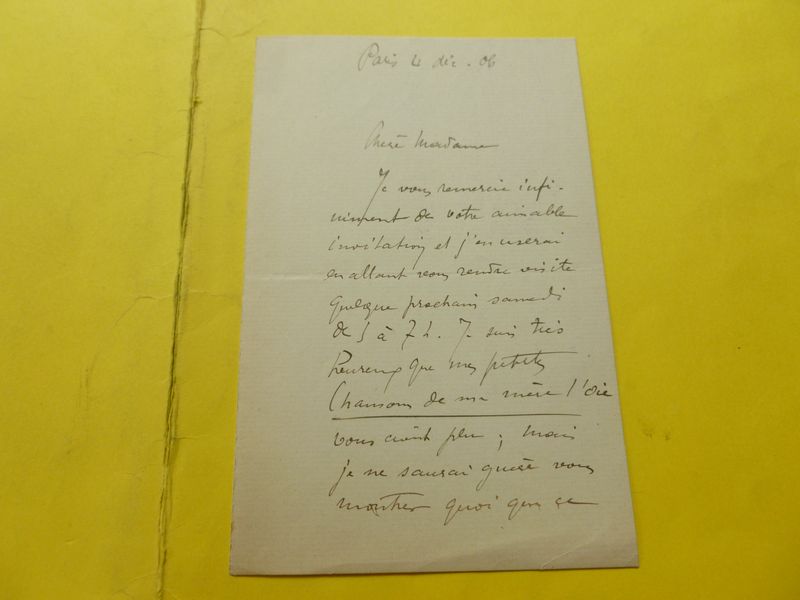 Paris 4 déc. 06
Chère Madame
Je vous remercie infi-
niment de votre aimable
invitation et j'en userai
en allant vous rendre visite
quelque prochain samedi
de 5 à 7 h. Je suis très
heureux que mes petites
Chansons de ma mère l'oie
vous aient plu ; mais
je ne saurai guère vous
montrer quoi que ce